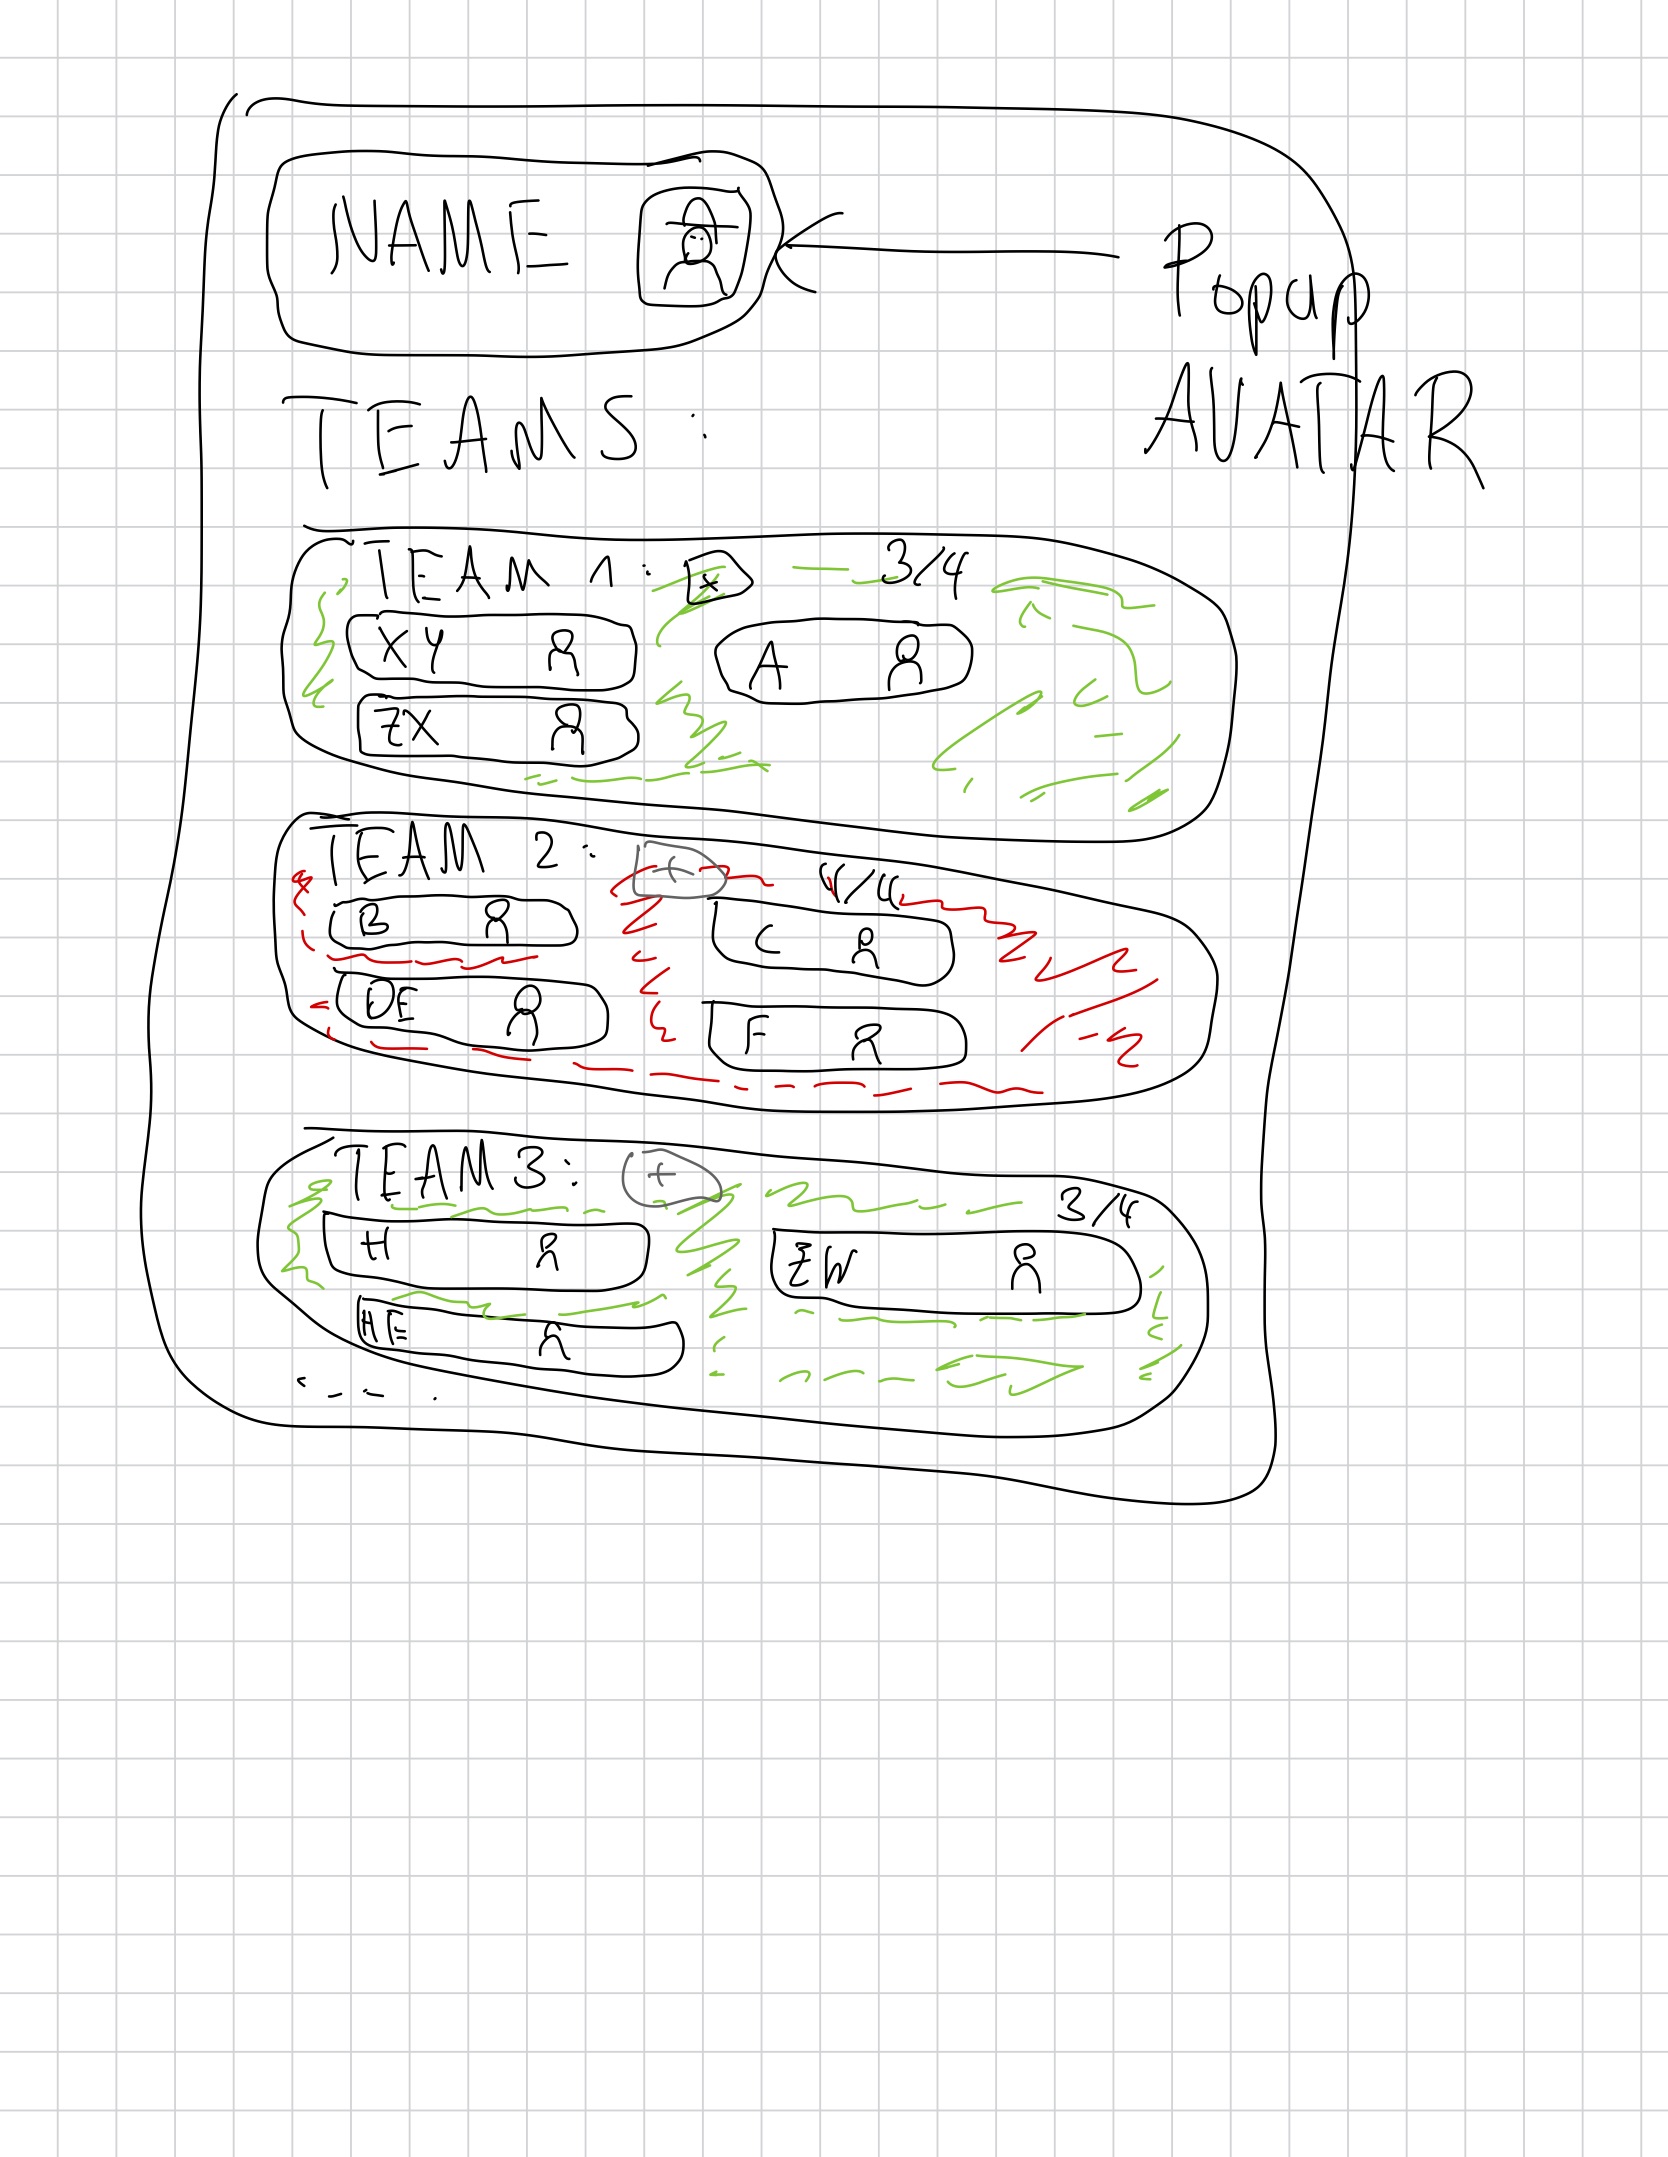 NAME
Popup
AVATAR
TEAMS:
TEAM 1: x 3/4
XY A
ZX
TEAM 2: + 4/4
B C
DE F
TEAM 3: + 3/4
H ZW
HE